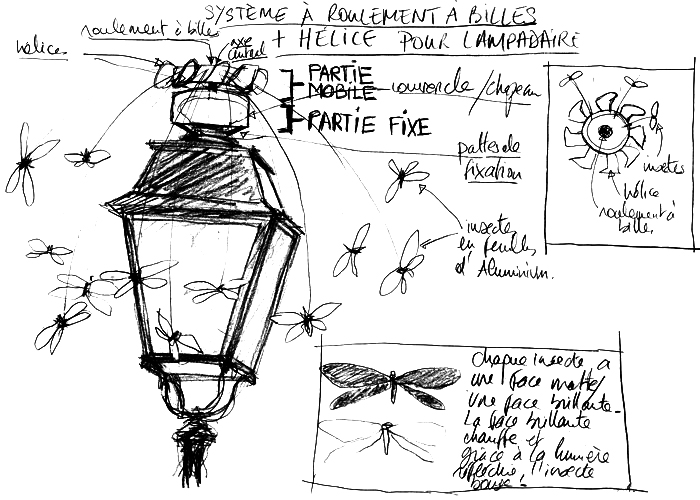 SYSTÈME À ROULEMENT À BILLES
+ HÉLICE POUR LAMPADAIRE
roulement à billes
hélice
axe
central
PARTIE
MOBILE
couvercle / chapeau
PARTIE FIXE
pattes de
fixation
insectes
en feuilles
d'Aluminium.
insectes
hélice
roulement à
billes
chaque insecte a
une face matte/
une face brillante.
la face brillante
chauffe et
grâce à la lumière
réfléchie, l'insecte
bouge!